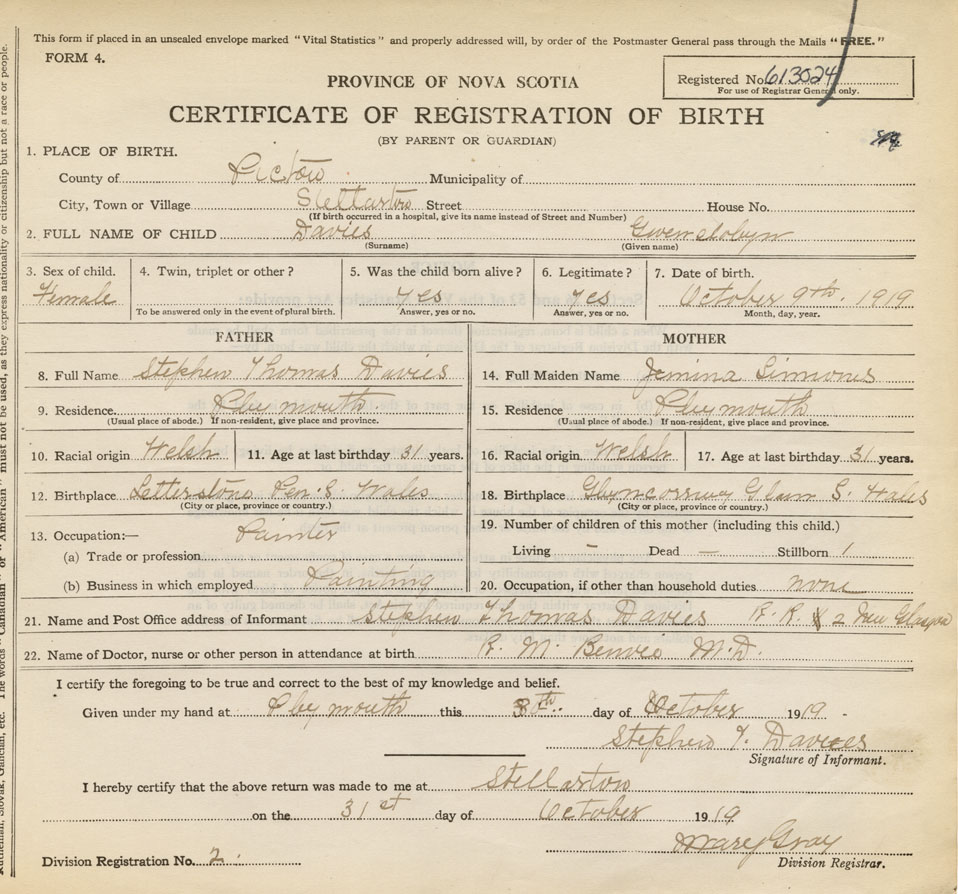 This form if placed in an unsealed envelope marked "Vital Statistics" and properly addressed will, by order of the Postmaster General pass through the Mails "FREE."
FORM 4.
Registered No. 613024
For use of Registrar General only.
PROVINCE OF NOVA SCOTIA
CERTIFICATE OF REGISTRATION OF BIRTH
(BY PARENT OR GUARDIAN)
1. PLACE OF BIRTH.
County of Pictou Municipality of
City, Town or Village Stellarton Street House No.
(If birth occurred in a hospital, give its name instead of Street and Number)
2. FULL NAME OF CHILD Davies Gwendolyn
(Surname) (Given name)
3. Sex of child. 4. Twin, triplet or other? 5. Was the child born alive? 6. Legitimate? 7. Date of birth.
Female yes yes October 9th. 1919
To be answered only in the event of plural birth. Answer, yes or no. Answer, yes or no. Month, day, year.
FATHER MOTHER
8. Full Name Stephen Thomas Davies 14. Full Maiden Name Jemina
9. Residence Plymouth 15. Residence Plymouth
(Usual place of abode.) If non-resident, give place and province. (Usual place of abode.) If non-resident, give place and province.
10. Racial origin Welsh 11. Age at last birthday 31 years. 16. Racial origin Welsh 17. Age at last birthday 31 years.
12. Birthplace Letterstone Pem. S. Wales 18. Birthplace Glam S. Wales
(City or place, province or country.) (City or place, province or country.)
13. Occupation:— Painter 19. Number of children of this mother (including this child.)
(a) Trade or profession Living – Dead – Stillborn /
(b) Business in which employed Painting 20. Occupation, if other than household duties none
21. Name and Post Office address of Informant Stephen Thomas Davies R. R. # 2 New Glasgow
22. Name of Doctor, nurse or other person in attendance at birth R. M. M.D.
I certify the foregoing to be true and correct to the best of my knowledge and belief.
Given under my hand at Plymouth this 30th day of October 1919
Stephen T. Davies
Signature of Informant.
I hereby certify that the above return was made to me at Stellarton
on the 31st day of October 1919
Mary Gray
Division Registration No. 2. Division Registrar.
must not be used, as they express nationality or citizenship but not a race or people.
The words "Canadian" or "American"